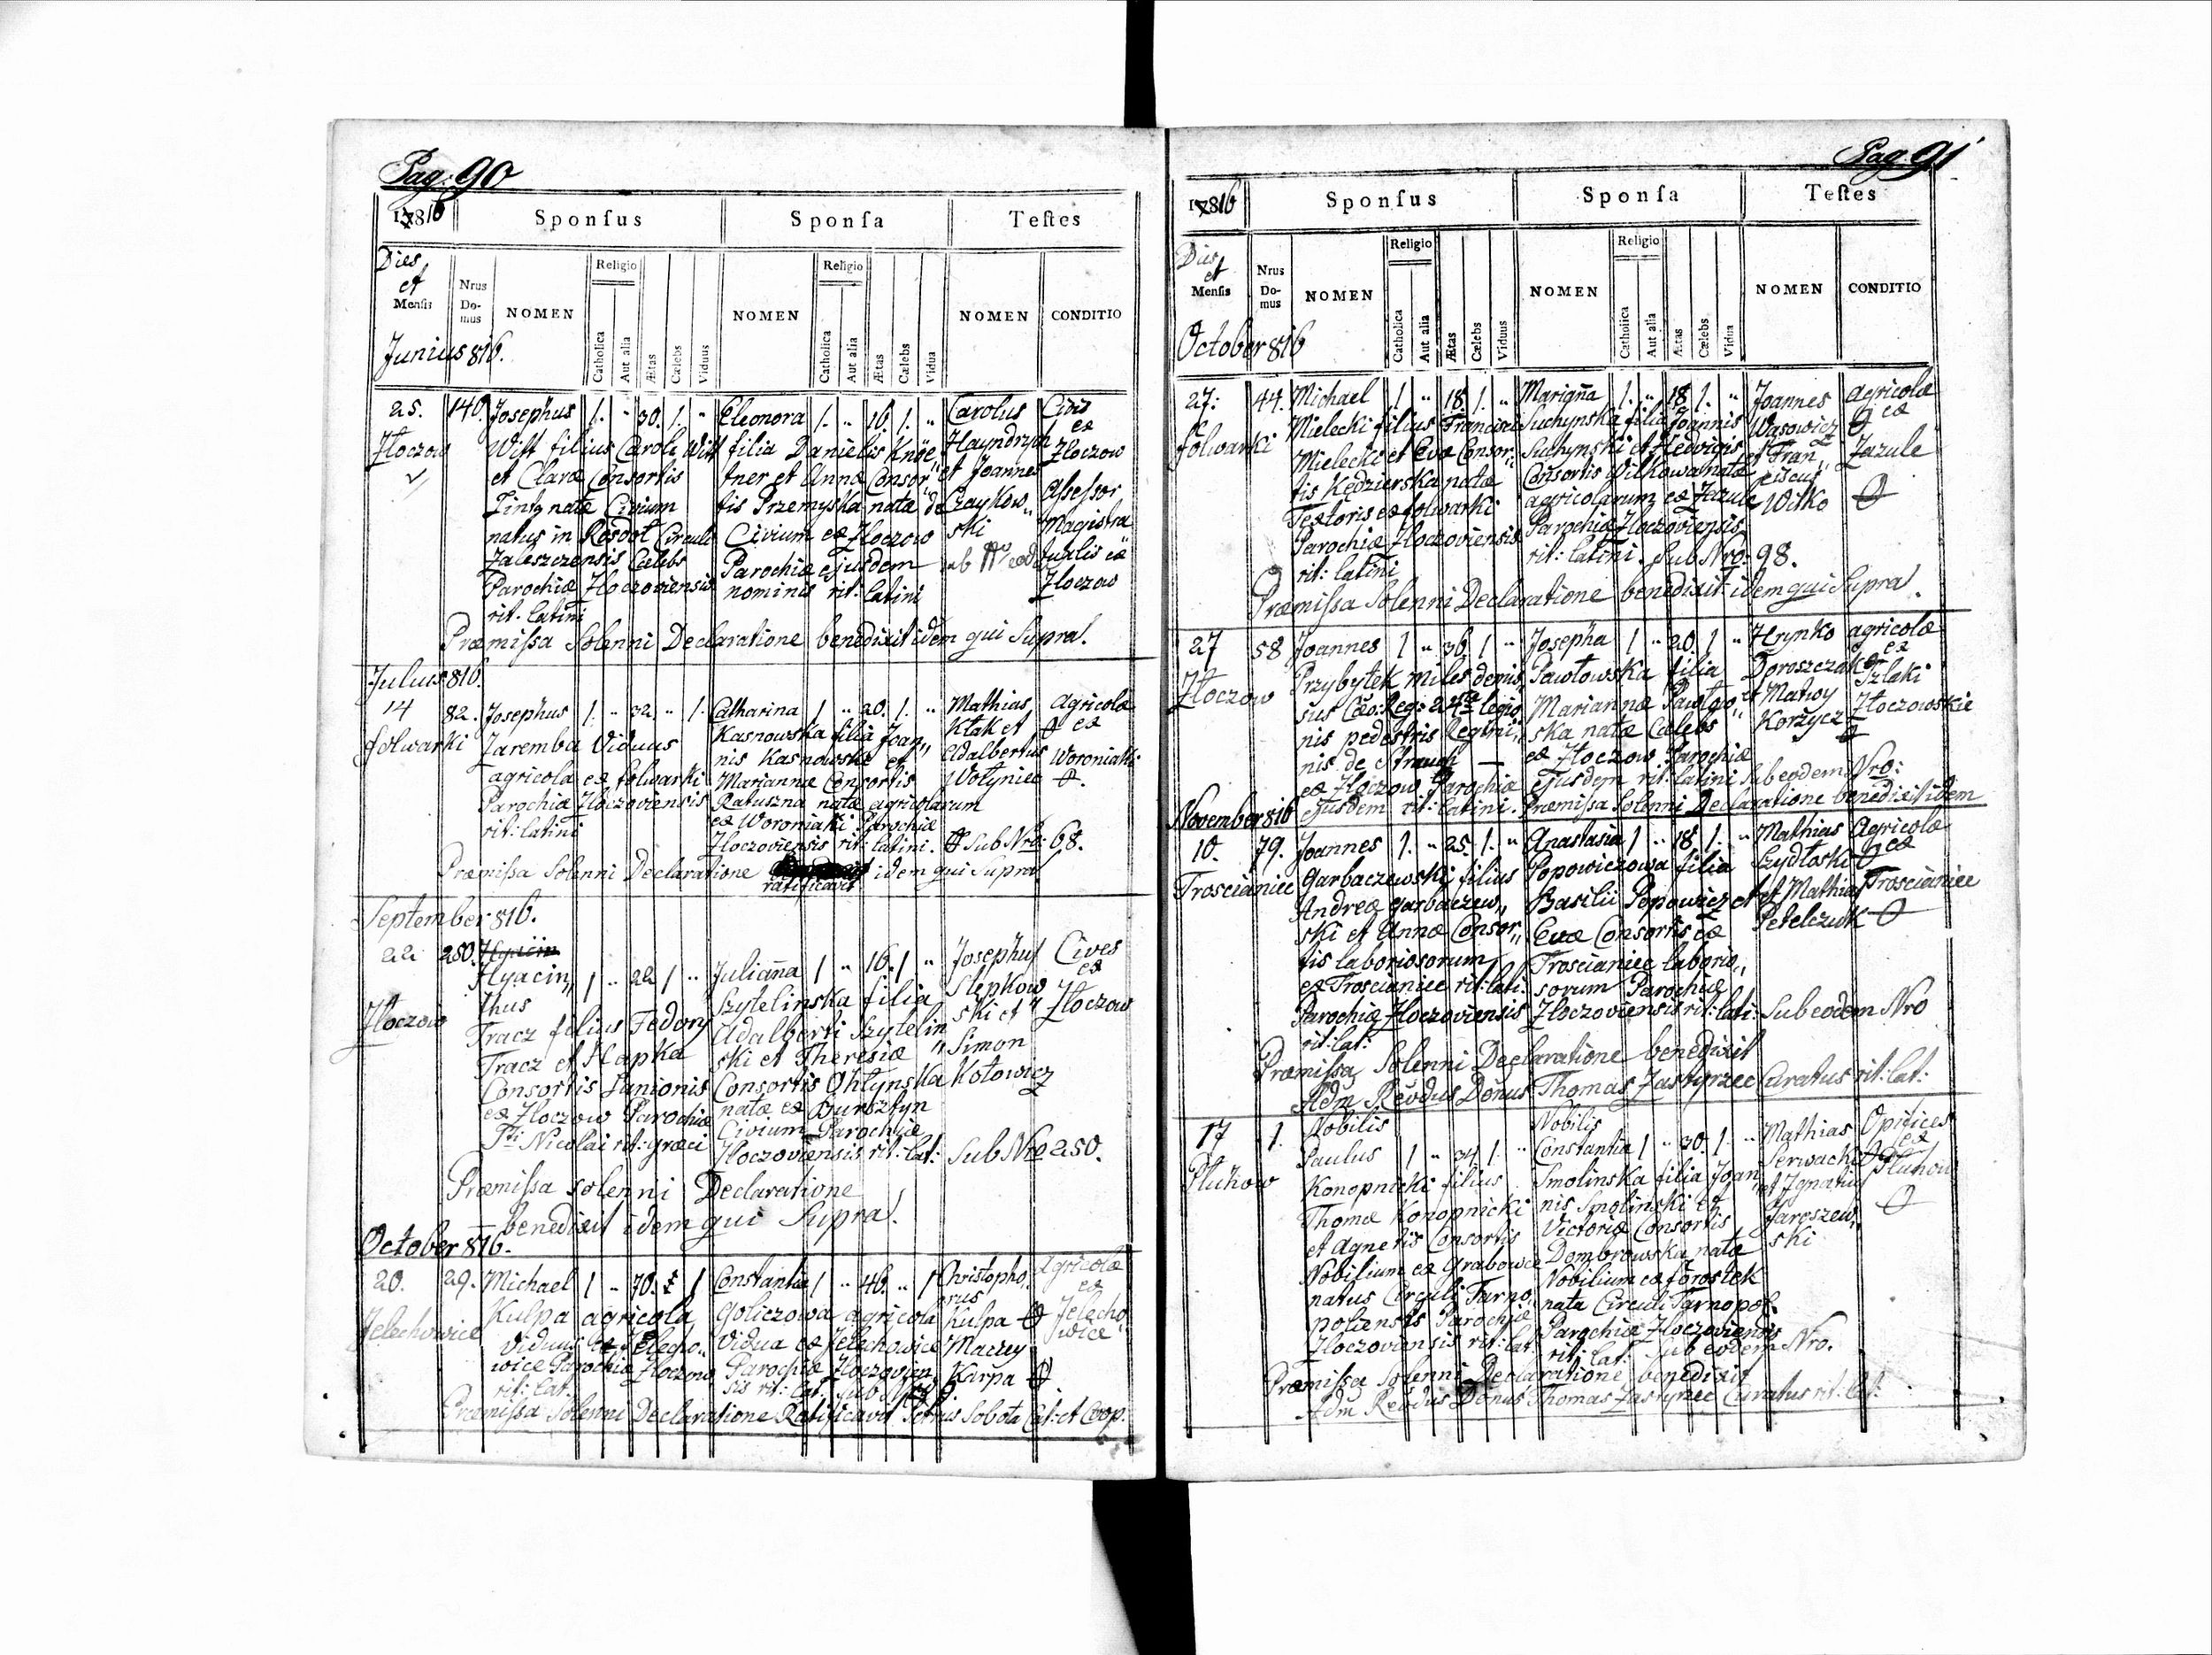 Pag: 90
1816
Sponsus Sponsa Testes
Dies et Mensis
Nrus Domus
NOMEN
Religio
Catholica
Aut alia
Ætas
Cælebs
Viduus
NOMEN
Religio
Catholica
Aut alia
Ætas
Cælebs
Vidua
NOMEN
CONDITIO
Junius 816.
25. 140. Josephus 1. " 30. 1. " Eleonora 1. " 16. 1. " Carolus Civis
Złoczow Witt filius Caroli Witt filia Danielis Knöe Hayndrych ex
et Claræ Consortis tner et Annæ Consor" et Joannes Złoczow
natæ Civium tis Przemyska nata de Czaykow" Assessor
natus in Circulo Civium ex Złoczow ski Magistra
Zaleszczensis Cælebs Parochiæ ejusdem sub Nro eod tualis ex
Parochiæ Złoczoviensis nominis rit: latini Złoczow
rit: latini
Præmissa Solenni Declaratione benedixit idem qui Supra.
Julius 816.
14 82. Josephus 1. " 32. " 1. Catharina 1 " 20. 1. " Mathias Agricolæ
folwarki Zaremba Viduus Kasnowska filia Joan" Kłak et ex
agricola ex folwarki nis Kasnowski et Adalbertus Woroniaki
Parochiæ Złoczoviensis Mariannæ Consortis Wołyniec
rit: latini Ratuszna natæ agricolarum
ex Woroniaki Parochiæ
Złoczoviensis rit: latini. Sub Nro: 68.
Præmissa Solenni Declaratione ratificavit idem qui Supra
September 816.
22 250. Hyacin
Hyacin" 1 " 22 1 " Julianna 1 " 16. 1 " Josephus Cives
thus Szytelinska filia Slepkow ex
Złoczow Tracz filius Fedory Adalberti Szytelin ski et " Złoczow
Tracz et Hapka ski et Theresiæ " Simon
Consortis Lanionis Consortis Ohlynska Kotowicz
ex Złoczow Parochiæ natæ ex Bursztyn
Sti: Nicolai rit: græci Civium Parochiæ
Złoczoviensis rit: lat: Sub Nro 250.
Præmissa solenni Declaratione
benedixit idem qui Supra.
October 816.
20. 29. Michael 1 " 70. 1 Constantia 1 " 46. " 1 Christopho" Agricolæ
Jelechowice Kulpa agricola Goliczowa agricola rus ex
Viduus ex Jelecho" Vidua ex Jelechowice Kulpa Jelecho
wice Parochiæ Złoczow Parochiæ Złoczovien Maciey wice
rit: lat. sis rit: lat. sub Nro Karpa
Præmissa Solenni Declaratione Ratificavit Petrus Sobota Cat: et Coop.
Pag. 91
1816
Sponsus Sponsa Testes
Dies et Mensis
Nrus Domus
NOMEN
Religio
Catholica
Aut alia
Ætas
Cælebs
Viduus
NOMEN
Religio
Catholica
Aut alia
Ætas
Cælebs
Vidua
NOMEN
CONDITIO
October 816
27: 44. Michael 1 " 18. 1. " Marianna 1. " 18 1. " Joannes agricolæ
folwarki Mielecki filius Francisci Suchynska filia Joannis Wąsowicz ex
Mielecki et Evæ Consor: Suchynski et Hedvigis et Fran" Zazule
tis Kędzierska natæ Consortis Witkowa natæ ciscus
Textoris ex folwarki agricolarum ex Zazule Witko
Parochiæ Złoczoviensis Parochiæ Złoczoviensis
rit: latini rit: latini. Sub Nro: 98.
Præmissa Solenni Declaratione benedixit idem qui Supra.
27 58 Joannes 1 " 36 1 " Josepha 1 " 20. 1 " Hrynko agricolæ
Złoczow Przybytek miles demis" Pawłowska filia Doroszczak ex
sus Cæo: Reg: 24tæ legio Mariannæ Pawłow" et Matwy Szlaki
nis pedestris Regimi" ska natæ Cælebs Korzycz Złoczowskie
nis de Strauch — ex Złoczow Parochiæ
ex Złoczow Parochiæ ejusdem rit: latini Sub eodem Nro:
November 816 ejusdem rit: latini. Præmissa Solenni Declaratione benedixit idem
10. 79. Joannes 1. " 25. 1. " Anastasia 1 " 18. 1. " Mathias Agricolæ
Troscianiec Garbaczewski filius Popowiczowa filia Szydłoski ex
Andreæ Garbaczew" Basilii Popowicz et et Mathias Troscianiec
ski et Annæ Consor" Evæ Consortis ex Petelczuk
tis laboriosorum Troscianiec laborio"
ex Troscianiec rit: lati: sorum Parochiæ
Parochiæ Złoczoviensis Złoczoviensis rit: lati: Sub eodem Nro
rit: lat:
Præmissa Solenni Declaratione benedixit
Adm Revdus Donus Thomas Zastyrzec Curatus rit: lat:
17 1. Nobilis Nobilis
Płuhow Paulus 1 " 34 1. " Constantia 1 " 30. 1. " Mathias Opifices
Konopnicki filius Smolinska filia Joan" Serwacki ex
Thomæ Konopnicki nis Smolinski et et Ignatius Płuhow
et Agnetis Consortis Victoriæ Consortis Jaroszew"
Nobilium ex Grabowce Dombrowska natæ ski
natus Circuli Tarno" Nobilium ex forostek
poliensis Parochiæ nata Circuli Tarnopol.
Złoczoviensis rit: lat: Parochiæ Złoczoviensis
rit: lat: sub eodem Nro.
Præmissa Solenni Declaratione benedixit
Adm Revdus Donus Thomas Zastyrzec Curatus rit: lat: